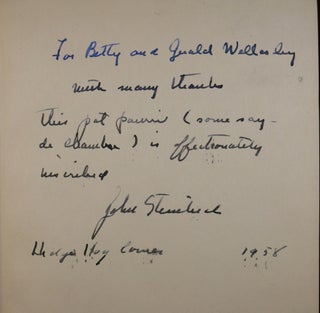 For Betty and Gerald Wellesley
with many thanks
this pot pourri (some say
de chambre) is affectionately
inscribed
John Steinbeck
Hedge Hog Corner 1958